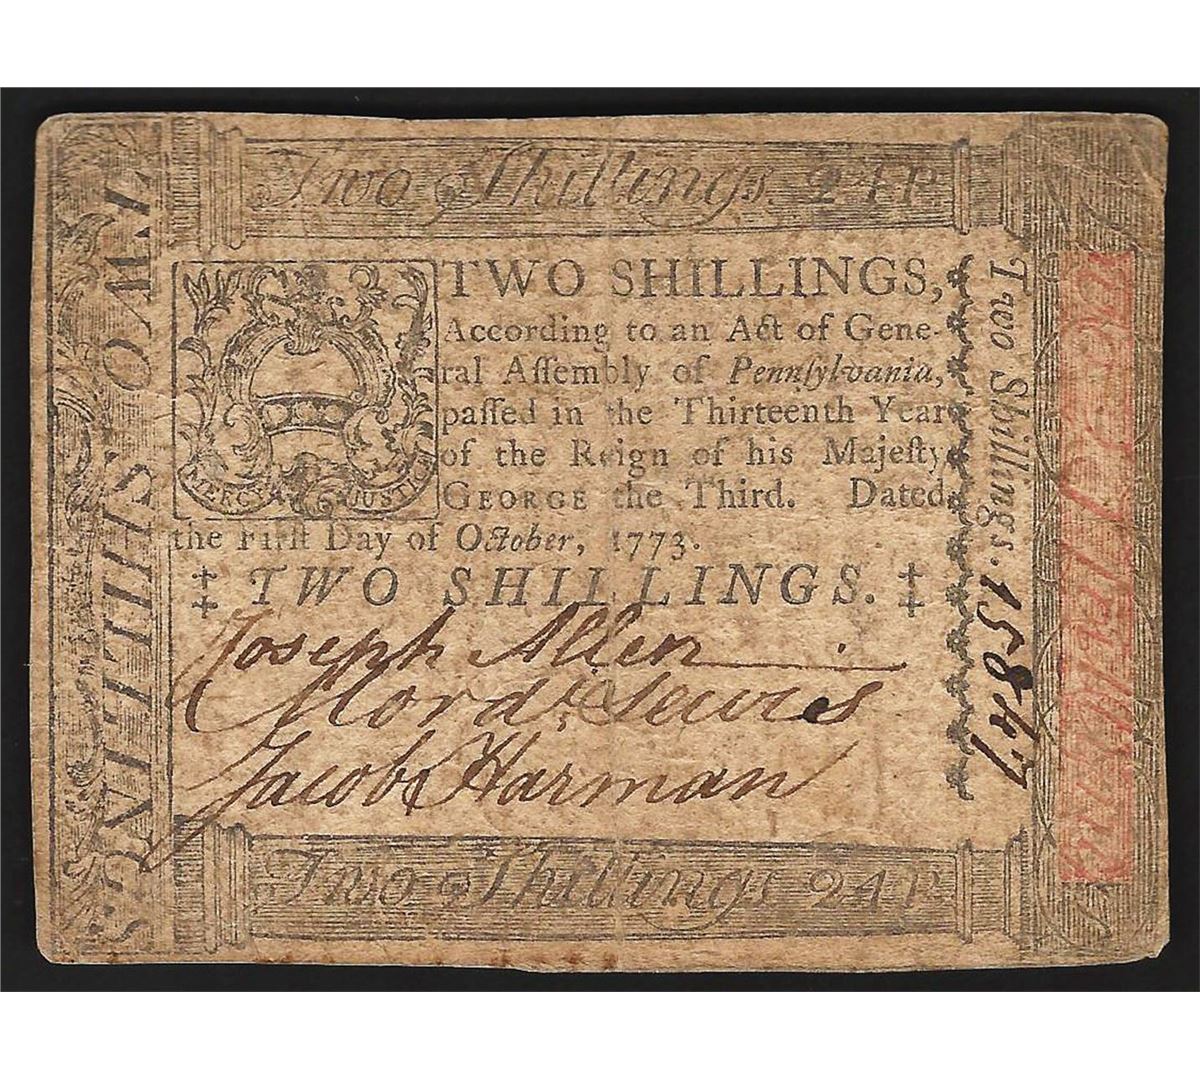 Two Shillings. 24 P
TWO SHILLINGS
MERCY JUSTICE
TWO SHILLINGS,
According to an Act of Gene-
ral Aſſembly of Pennſylvania,
paſſed in the Thirteenth Year
of the Reign of his Majeſty
GEORGE the Third. Dated
the Firſt Day of October, 1773.
‡ TWO SHILLINGS. ‡
Joseph Allen
Mordᵗ. Lewis
Jacob Harman
Two Shillings 24 P
Two Shillings. 15847